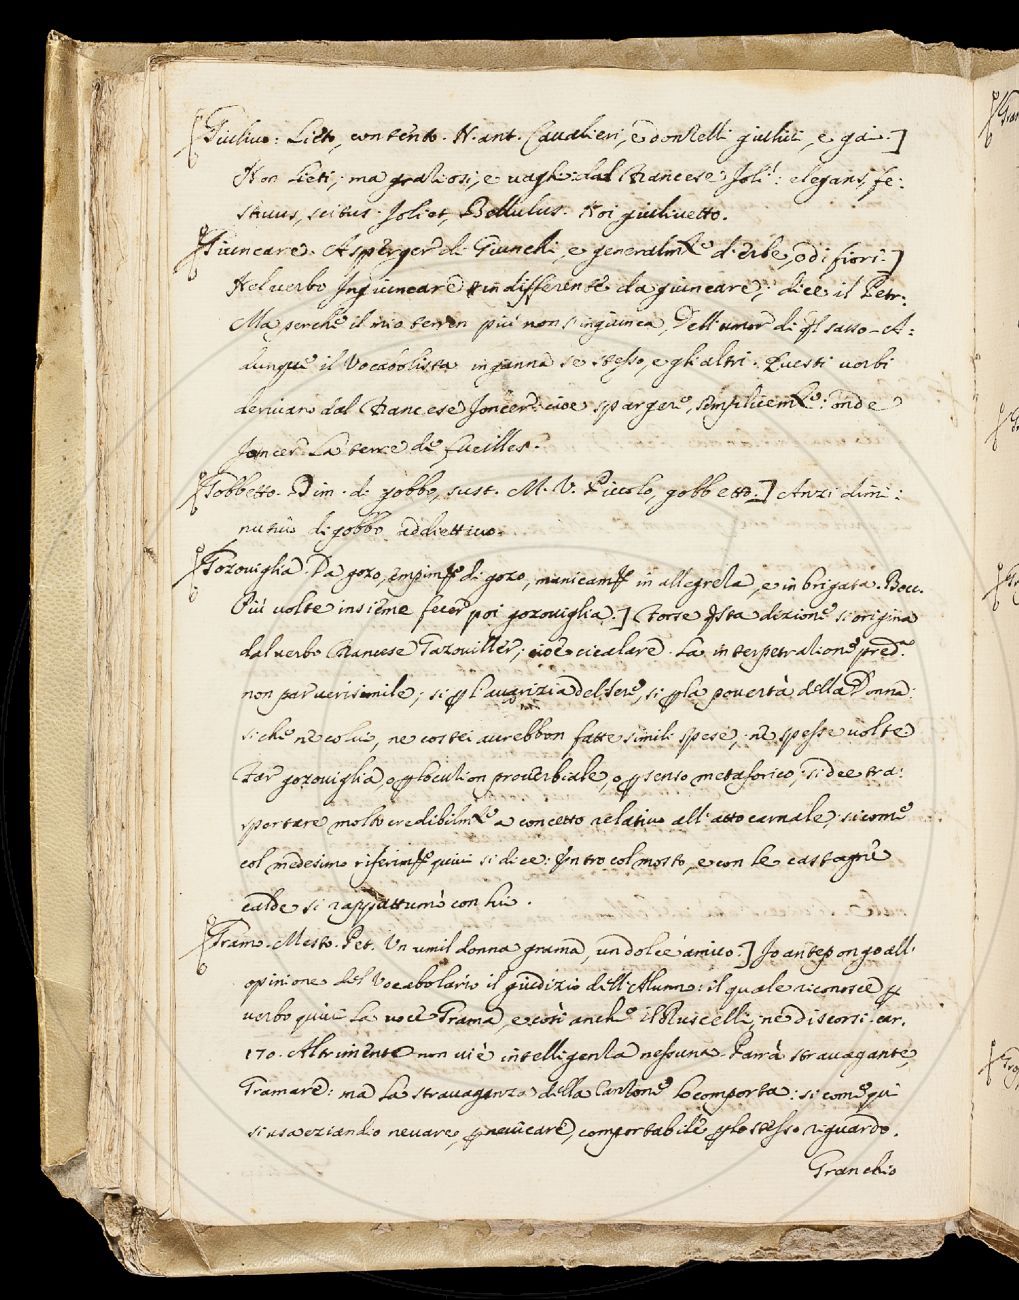 Giulivo: Lieto, contento. N. ant. Cavalieri, e donzelli giulivi, e gai.]
Non Lieti; ma gratiosi, e vaghi: dal Francese Joli: elegans, fe:
stivus, scitus. Joliet, Bellulus. Noi giulivetto.
Giuncare. Asperger di Giunchi, e generalmte d'erbe, o di fiori.]
Nel verbo Ingiuncare indifferente da giuncare; dice il Petr:
Ma perche il mio terren più non s'ingiunca, Dell'umor di ql sasso. A:
dunque il Vocabolista inganna se stesso, e gli altri. Questi verbi
derivano dal Francese Joncer: cioe spargere semplicemte: onde
Joncer La terre de fueilles.
Gobbetto. Dim. di gobbo, sust. M. V. Piccolo, gobbetto.] Anzi dimi:
nutivo di gobbo addiettivo.
Gozoviglia. Da gozo, di gozo, in allegreza, e in brigata. Bocc.
Più volte insieme fecer poi gozoviglia.] Forse qsta dizione si origina
dal verbo Francese Gazouiller; cioe cicalare. La interpetratione pred.a
non par verisimile; si p l'avarizia del Sere, si p la povertà della Donna:
si che ne colui, ne costei avrebbon fatte simili spese; ne spesse volte
Far gozoviglia, o p locution proverbiale, o p senso metaforico; si dee tra:
sportare molto credibilmte a concetto relativo all'atto carnale; si come
col medesimo quivi si dice: col mosto, e con le castagne
calde si rappattumò con lui.
Gramo. Mesto. Pet. Un umil donna grama, un dolce amico.] Io antepongo all'
opinione del Vocabolario il giudizio dell'Alunno: il quale riconosce p
verbo quivi La voce Grama, e così anche il Ruscelli, ne discorsi: car.
170. Altrimente non vi è intelligenza nessuna. Parrà stravagante,
Gramare: ma La stravaganza della Canzone lo comporta: si come qui
si usa eziandio nevare, p nevicare, comportabile p lo stesso riguardo.
Granchio